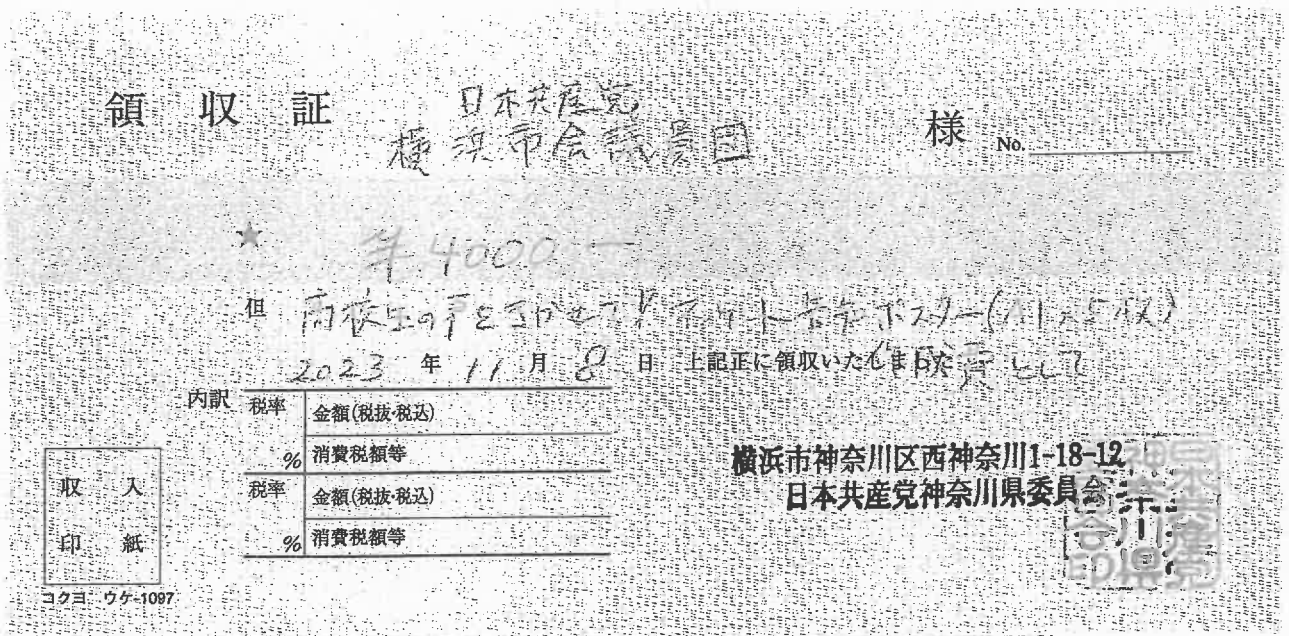 領収証 日本共産党
横浜市会議員団 様 No.
★ ¥4000—
但 高校生の声をきかせて! アンケート告知ポスター(A1×5枚)
作成費として
2023年11月8日 上記正に領収いたしました
内訳 税率 金額(税抜・税込)
% 消費税額等
税率 金額(税抜・税込)
% 消費税額等
収入
印紙
コクヨ ウケ-1097
横浜市神奈川区西神奈川1-18-12
日本共産党神奈川県委員会